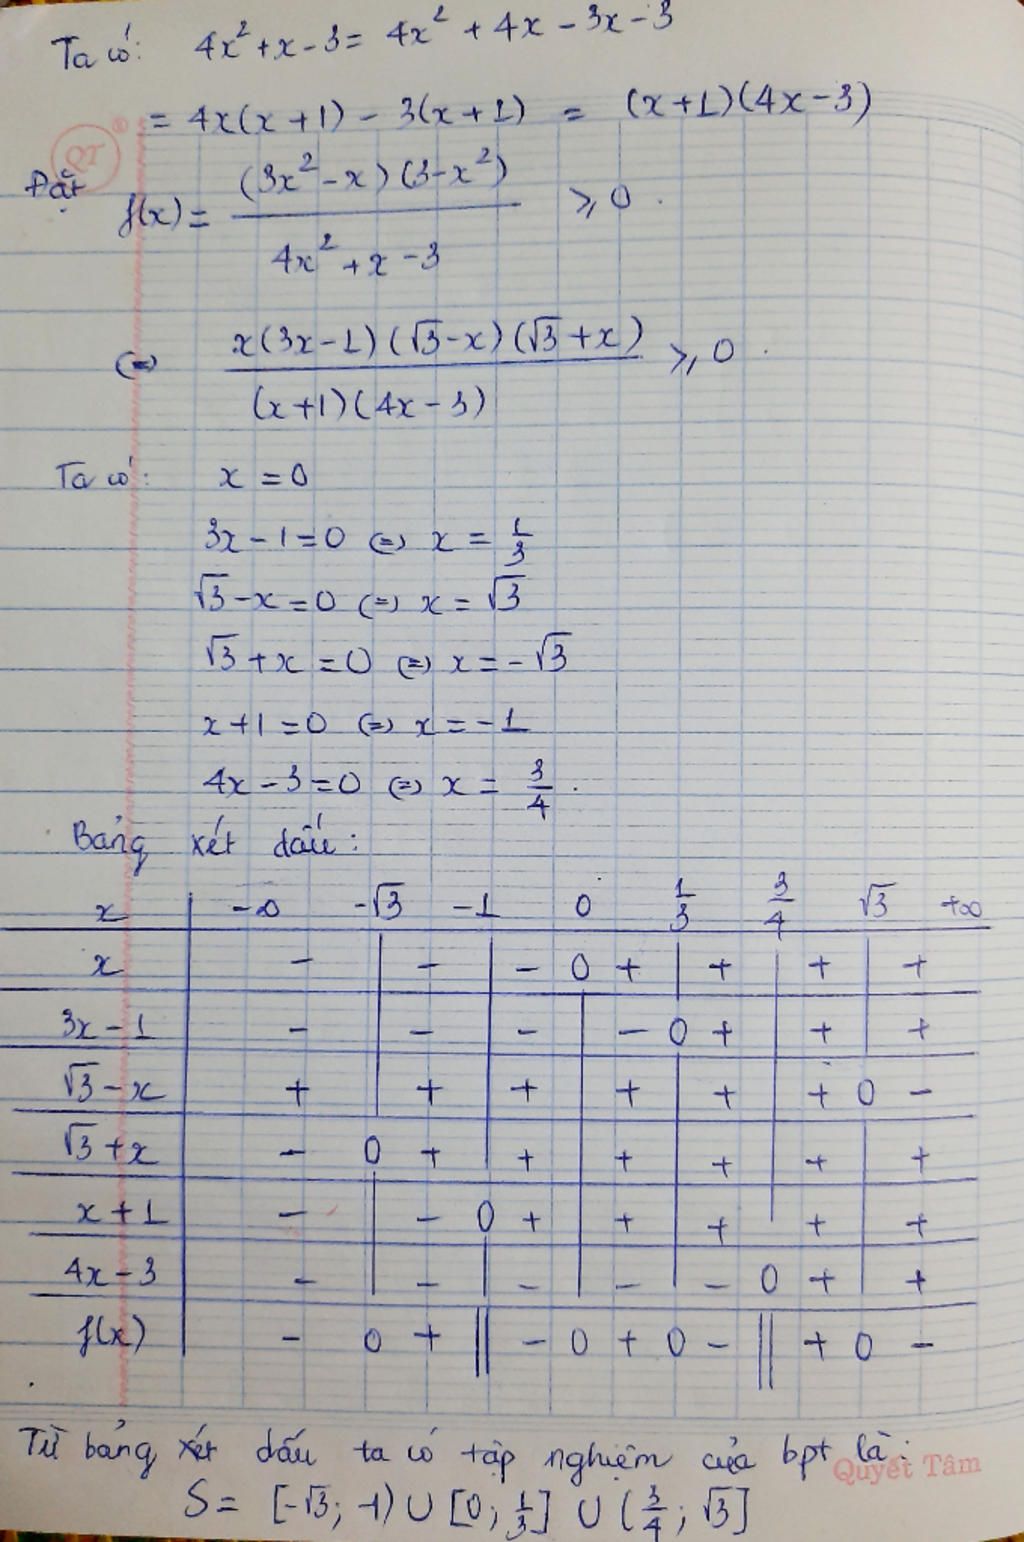 Ta có: 4x² + x - 3 = 4x² + 4x - 3x - 3
= 4x(x + 1) - 3(x + 1) = (x + 1)(4x - 3)
PT
Đặt f(x) = (3x² - x)(3 - x²) / (4x² + x - 3) ⩾ 0.
(=) x(3x - 1)(√3 - x)(√3 + x) / (x + 1)(4x - 3) ⩾ 0.
Ta có: x = 0
3x - 1 = 0 (=) x = 1/3
√3 - x = 0 (=) x = √3
√3 + x = 0 (=) x = -√3
x + 1 = 0 (=) x = -1
4x - 3 = 0 (=) x = 3/4.
Bảng xét dấu:
x | -∞ -√3 -1 0 1/3 3/4 √3 +∞
x | - | - | - 0 + | + | + | +
3x - 1 | - | - | - | - 0 + | + | +
√3 - x | + | + | + | + | + | + 0 -
√3 + x | - 0 + | + | + | + | + | +
x + 1 | - | - 0 + | + | + | + | +
4x - 3 | - | - | - | - | - 0 + | +
f(x) | - 0 + || - 0 + 0 - || + 0 -
Từ bảng xét dấu ta có tập nghiệm của bpt là:
Quyết Tâm
S = [-√3; -1) ∪ [0; 1/3] ∪ (3/4; √3]